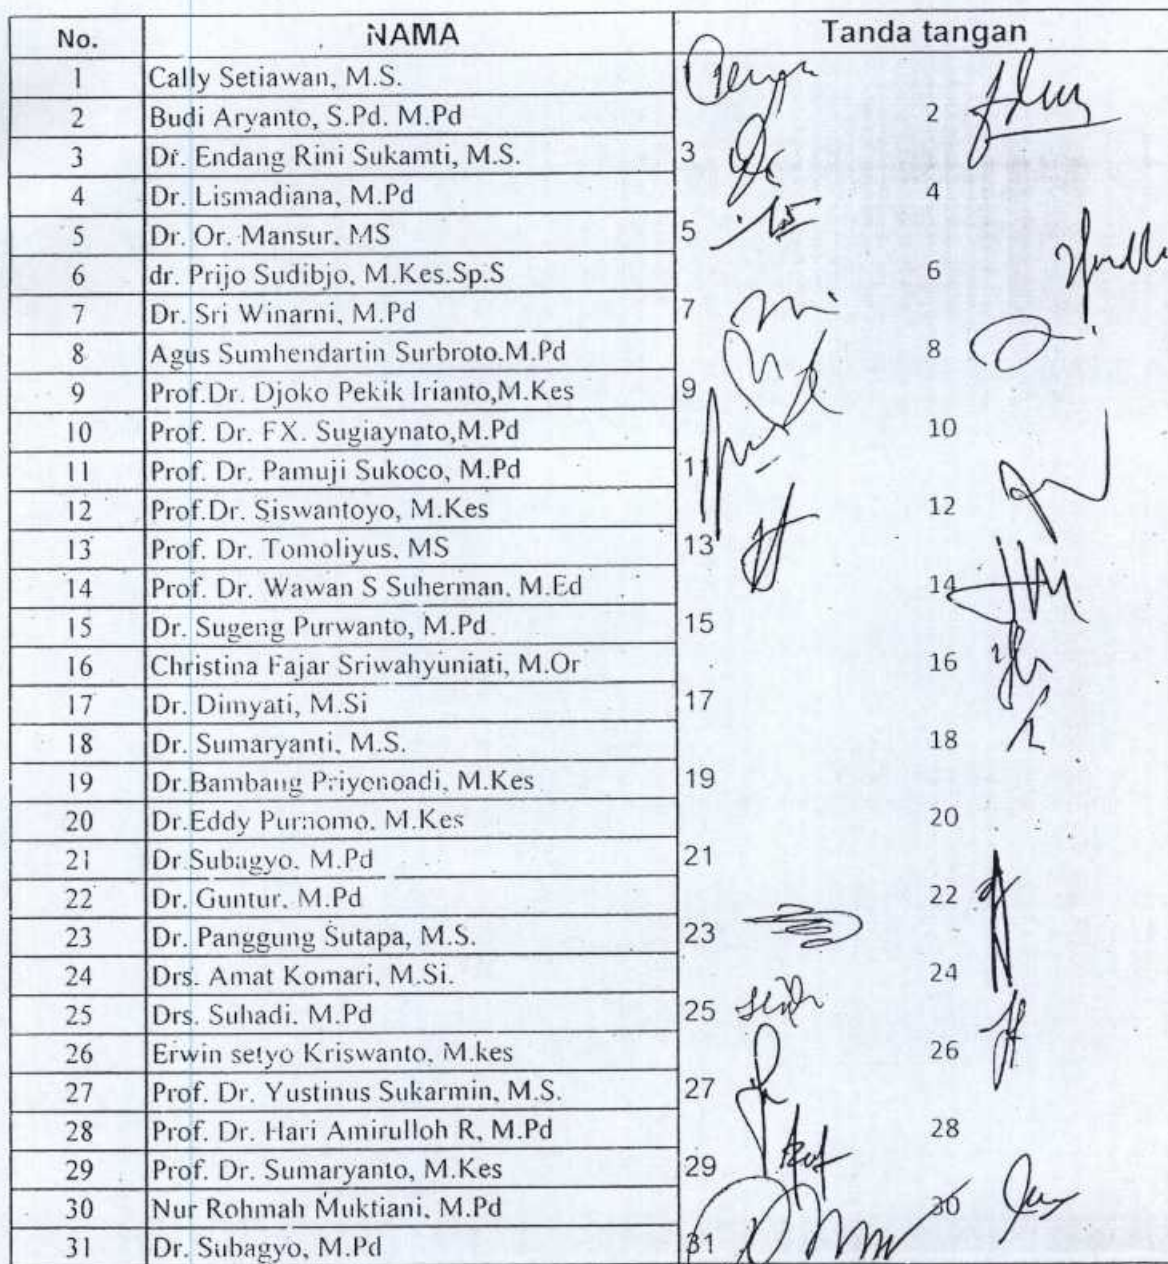 No. NAMA Tanda tangan
1 Cally Setiawan, M.S.
2 Budi Aryanto, S.Pd. M.Pd 2
3 Dr. Endang Rini Sukamti, M.S. 3
4 Dr. Lismadiana, M.Pd 4
5 Dr. Or. Mansur. MS 5
6 dr. Prijo Sudibjo, M.Kes.Sp.S 6
7 Dr. Sri Winarni, M.Pd 7
8 Agus Sumhendartin Surbroto.M.Pd 8
9 Prof.Dr. Djoko Pekik Irianto,M.Kes 9
10 Prof. Dr. FX. Sugiaynato,M.Pd 10
11 Prof. Dr. Pamuji Sukoco, M.Pd 11
12 Prof.Dr. Siswantoyo, M.Kes 12
13 Prof. Dr. Tomoliyus. MS 13
14 Prof. Dr. Wawan S Suherman. M.Ed 14
15 Dr. Sugeng Purwanto, M.Pd 15
16 Christina Fajar Sriwahyuniati, M.Or 16
17 Dr. Dimyati, M.Si 17
18 Dr. Sumaryanti, M.S. 18
19 Dr.Bambang Priyonoadi, M.Kes 19
20 Dr.Eddy Purnomo. M.Kes 20
21 Dr.Subagyo. M.Pd 21
22 Dr. Guntur. M.Pd 22
23 Dr. Panggung Sutapa, M.S. 23
24 Drs. Amat Komari, M.Si. 24
25 Drs. Suhadi. M.Pd 25
26 Erwin setyo Kriswanto, M.kes 26
27 Prof. Dr. Yustinus Sukarmin, M.S. 27
28 Prof. Dr. Hari Amirulloh R, M.Pd 28
29 Prof. Dr. Sumaryanto, M.Kes 29
30 Nur Rohmah Muktiani, M.Pd 30
31 Dr. Subagyo, M.Pd 31